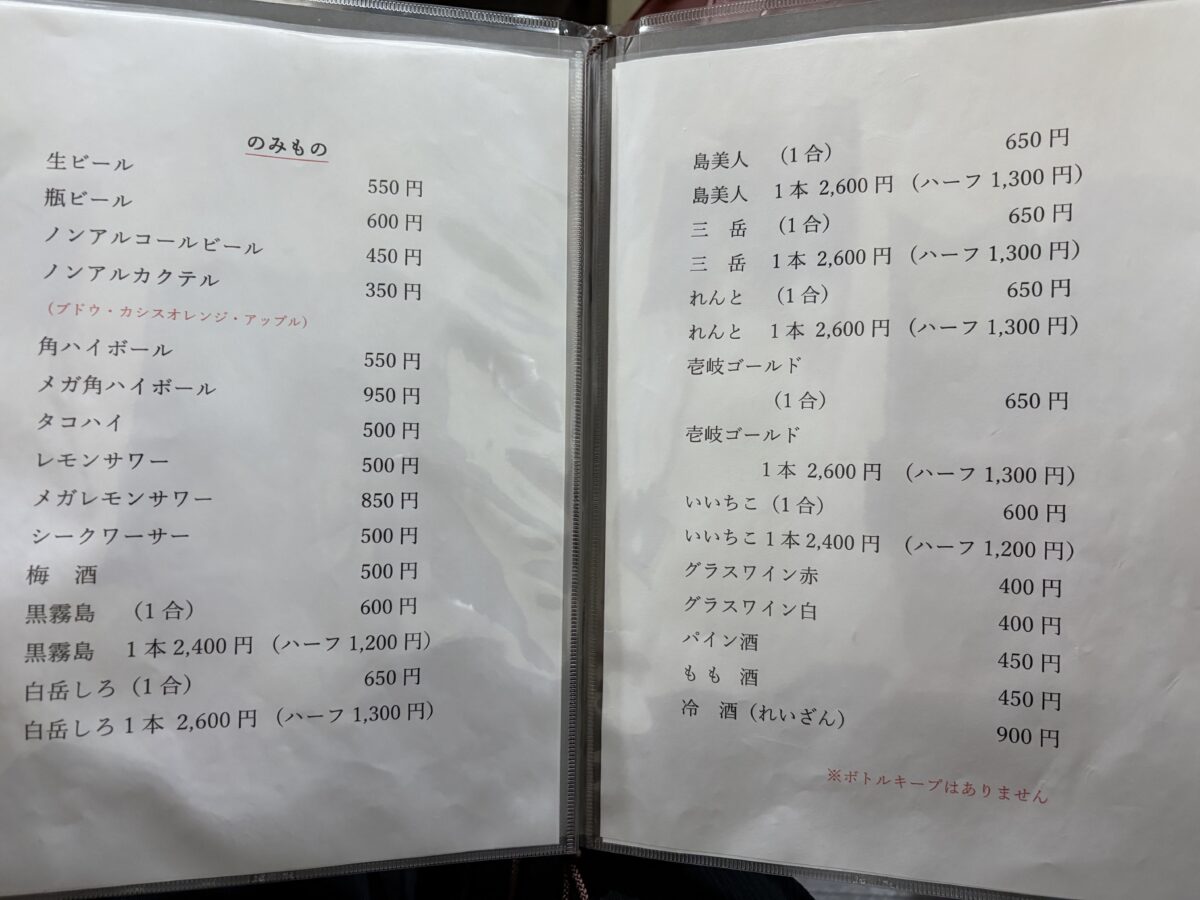 のみもの
生ビール 550円
瓶ビール 600円
ノンアルコールビール 450円
ノンアルカクテル 350円
（ブドウ・カシスオレンジ・アップル）
角ハイボール 550円
メガ角ハイボール 950円
タコハイ 500円
レモンサワー 500円
メガレモンサワー 850円
シークワーサー 500円
梅　酒 500円
黒霧島　（1合） 600円
黒霧島　1本 2,400円 （ハーフ 1,200円）
白岳しろ（1合） 650円
白岳しろ 1本 2,600円 （ハーフ 1,300円）
島美人　（1合） 650円
島美人　1本 2,600円 （ハーフ 1,300円）
三　岳　（1合） 650円
三　岳　1本 2,600円 （ハーフ 1,300円）
れんと　（1合） 650円
れんと　1本 2,600円 （ハーフ 1,300円）
壱岐ゴールド
（1合） 650円
壱岐ゴールド
1本 2,600円 （ハーフ 1,300円）
いいちこ（1合） 600円
いいちこ 1本 2,400円 （ハーフ 1,200円）
グラスワイン赤 400円
グラスワイン白 400円
パイン酒 450円
もも　酒 450円
冷　酒（れいざん） 900円
※ボトルキープはありません